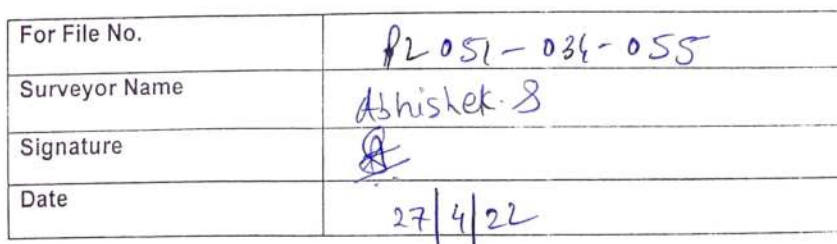 For File No. PL051-034-055
Surveyor Name Abhishek. S
Signature
Date 27/4/22